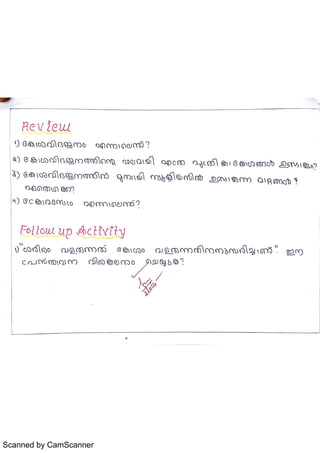 Review
1) കോശവിഭജനം എന്നാലെന്ത്?
2) കോശവിഭജനത്തിന്റെ ഫലമായി എത്ര പുത്രികാകോശങ്ങൾ ഉണ്ടാകും?
3) കോശവിഭജനത്തിന് മുമ്പായി ന്യൂക്ലിയസിൽ ഉണ്ടാകുന്ന മാറ്റങ്ങൾ
ഏതൊക്കെ?
4) ക്രോമസോം എന്നാലെന്ത്?
Follow up Activity
1) "ശരീരം വളരുന്നത് കോശം വളരുന്നതിനനുസരിച്ചാണ്". ഈ
പ്രസ്താവന വിശകലനം ചെയ്യുക?
Scanned by CamScanner